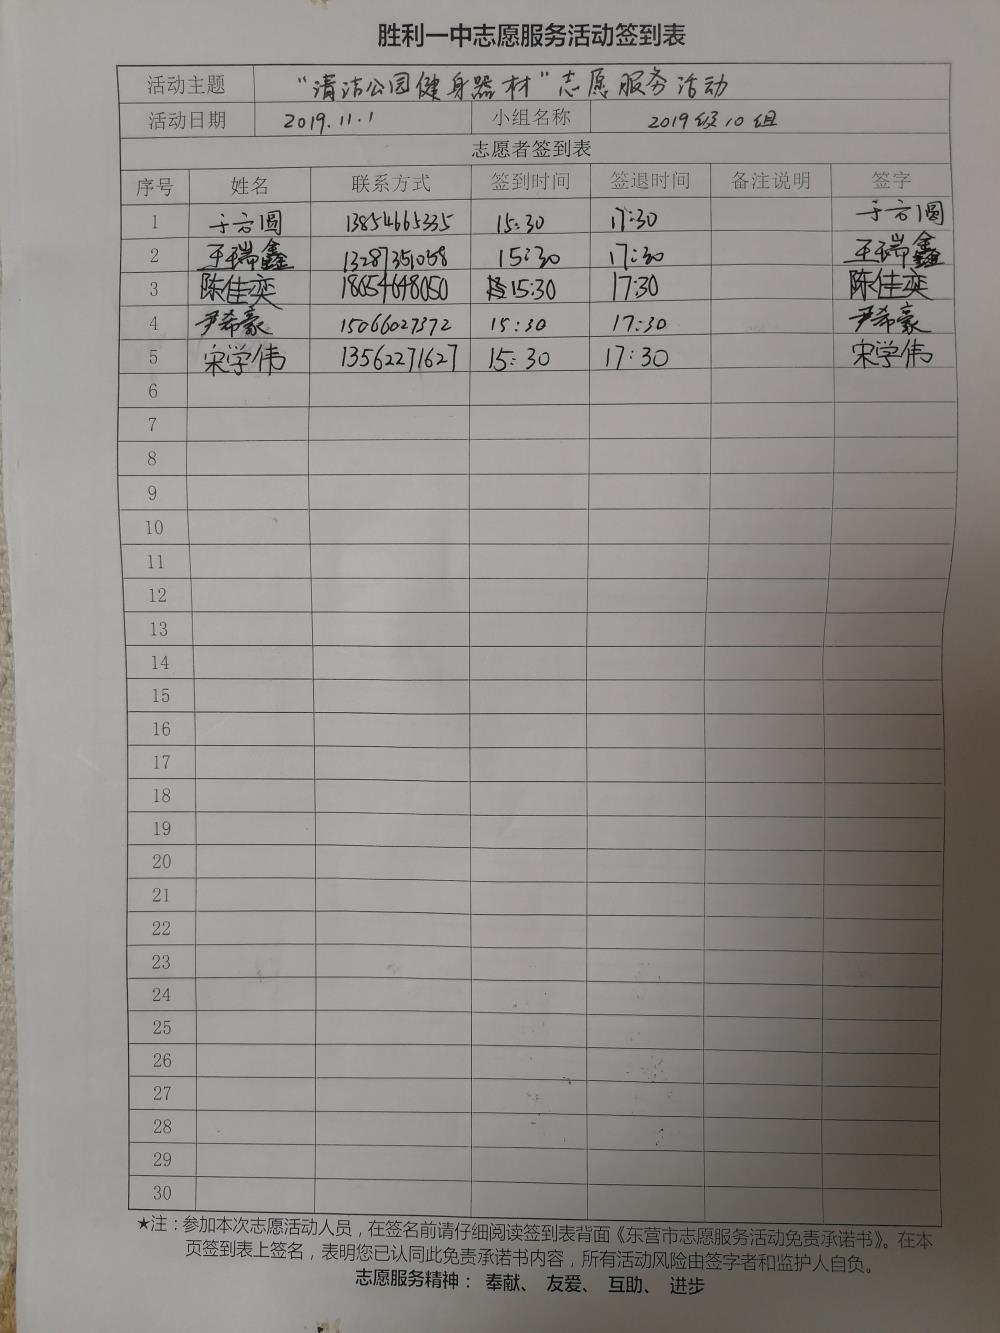 胜利一中志愿服务活动签到表
活动主题 “清洁公园健身器材”志愿服务活动
活动日期 2019.11.1 小组名称 2019级10组
志愿者签到表
序号 姓名 联系方式 签到时间 签退时间 备注说明 签字
1 于方圆 13854665335 15:30 17:30 于方圆
2 王瑞鑫 13287351058 15:30 17:30 王瑞鑫
3 陈佳奕 18654648050 15:30 17:30 陈佳奕
4 尹希豪 15066027372 15:30 17:30 尹希豪
5 宋学伟 13562271627 15:30 17:30 宋学伟
6
7
8
9
10
11
12
13
14
15
16
17
18
19
20
21
22
23
24
25
26
27
28
29
30
★注：参加本次志愿活动人员，在签名前请仔细阅读签到表背面《东营市志愿服务活动免责承诺书》。在本
页签到表上签名，表明您已认同此免责承诺书内容，所有活动风险由签字者和监护人自负。
志愿服务精神： 奉献、 友爱、 互助、 进步